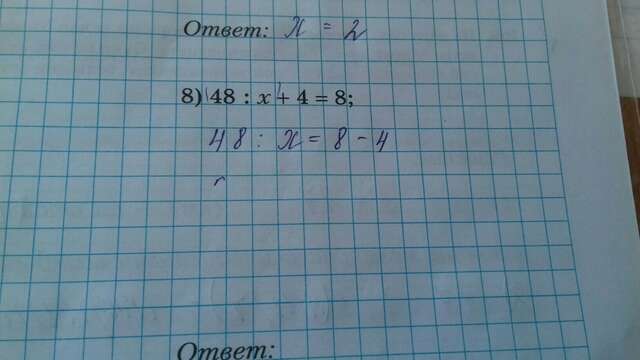 Ответ: x = 2
8) 48 : x + 4 = 8;
48 : x = 8 - 4
Ответ: